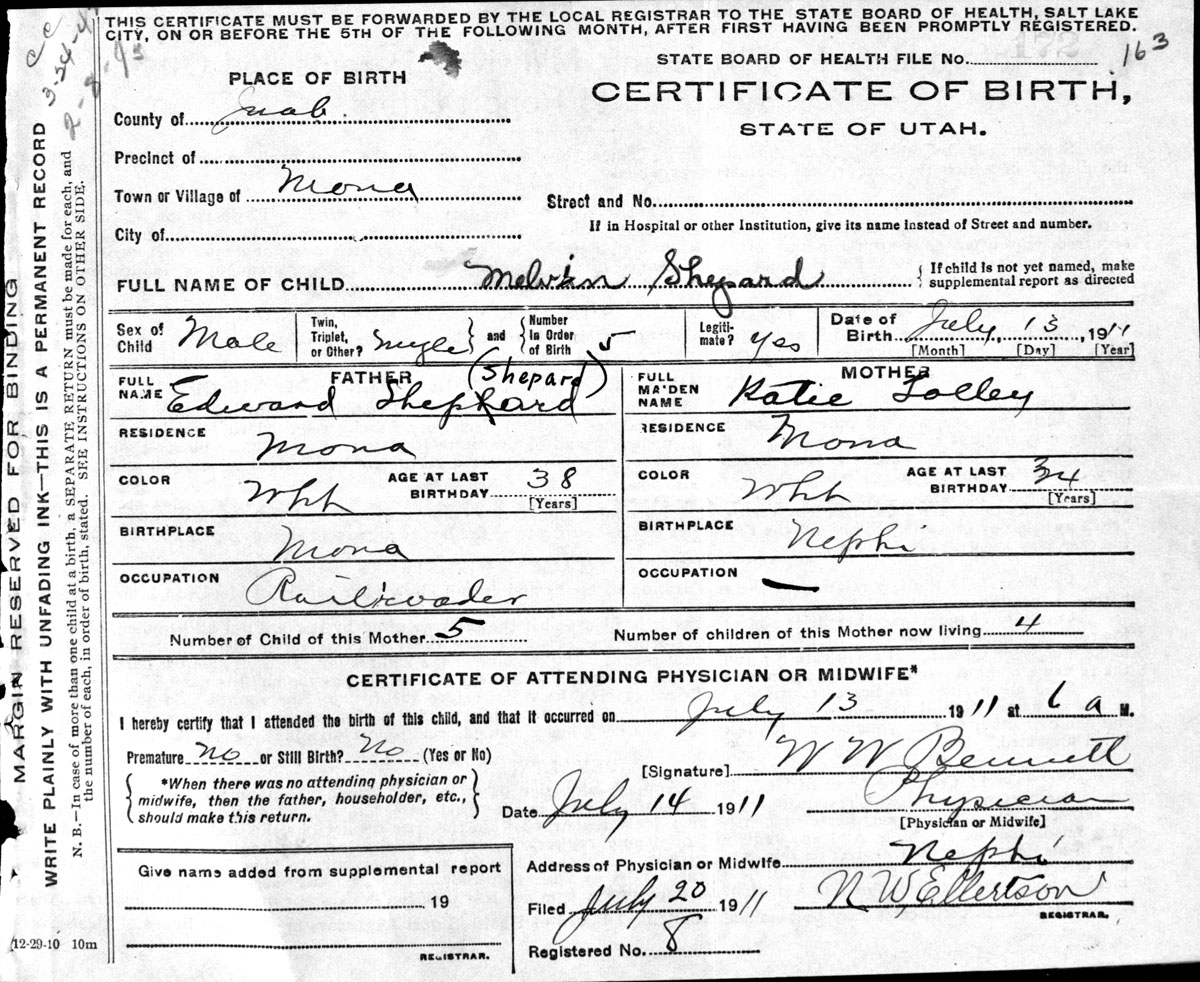 THIS CERTIFICATE MUST BE FORWARDED BY THE LOCAL REGISTRAR TO THE STATE BOARD OF HEALTH, SALT LAKE
CITY, ON OR BEFORE THE 5TH OF THE FOLLOWING MONTH, AFTER FIRST HAVING BEEN PROMPTLY REGISTERED.
STATE BOARD OF HEALTH FILE No. 163
PLACE OF BIRTH
CERTIFICATE OF BIRTH,
STATE OF UTAH.
County of Juab.
Precinct of
Town or Village of Mona
Street and No.
City of
If in Hospital or other Institution, give its name instead of Street and number.
FULL NAME OF CHILD Melvin Shepard
{ If child is not yet named, make
supplemental report as directed
Sex of Child Male
Twin, Triplet, or Other? single } and { Number in Order of Birth 5
Legiti-mate? yes
Date of Birth July, 13, 1911
[Month] [Day] [Year]
FATHER
FULL NAME Edward Shephard (Shepard)
MOTHER
FULL MAIDEN NAME Katie Tolley
RESIDENCE Mona
RESIDENCE Mona
COLOR Wht AGE AT LAST BIRTHDAY 38 [Years]
COLOR Wht AGE AT LAST BIRTHDAY 34 [Years]
BIRTHPLACE Mona
BIRTHPLACE Nephi
OCCUPATION Railroader
OCCUPATION —
Number of Child of this Mother 5 Number of children of this Mother now living 4
CERTIFICATE OF ATTENDING PHYSICIAN OR MIDWIFE*
I hereby certify that I attended the birth of this child, and that it occurred on July 13 1911 at 6 a M.
Premature no or Still Birth? No (Yes or No)
[Signature] W W Bennett
{ *When there was no attending physician or
midwife, then the father, householder, etc.,
should make this return. }
Date July 14 1911 Physician
[Physician or Midwife]
Address of Physician or Midwife Nephi
Give name added from supplemental report
19
REGISTRAR.
Filed July 20 1911 N. W. Ellertson
REGISTRAR.
Registered No. 8
12-29-10 10m
MARGIN RESERVED FOR BINDING
WRITE PLAINLY WITH UNFADING INK—THIS IS A PERMANENT RECORD
N. B.—In case of more than one child at a birth, a SEPARATE RETURN must be made for each, and
the number of each, in order of birth, stated. SEE INSTRUCTIONS ON OTHER SIDE.